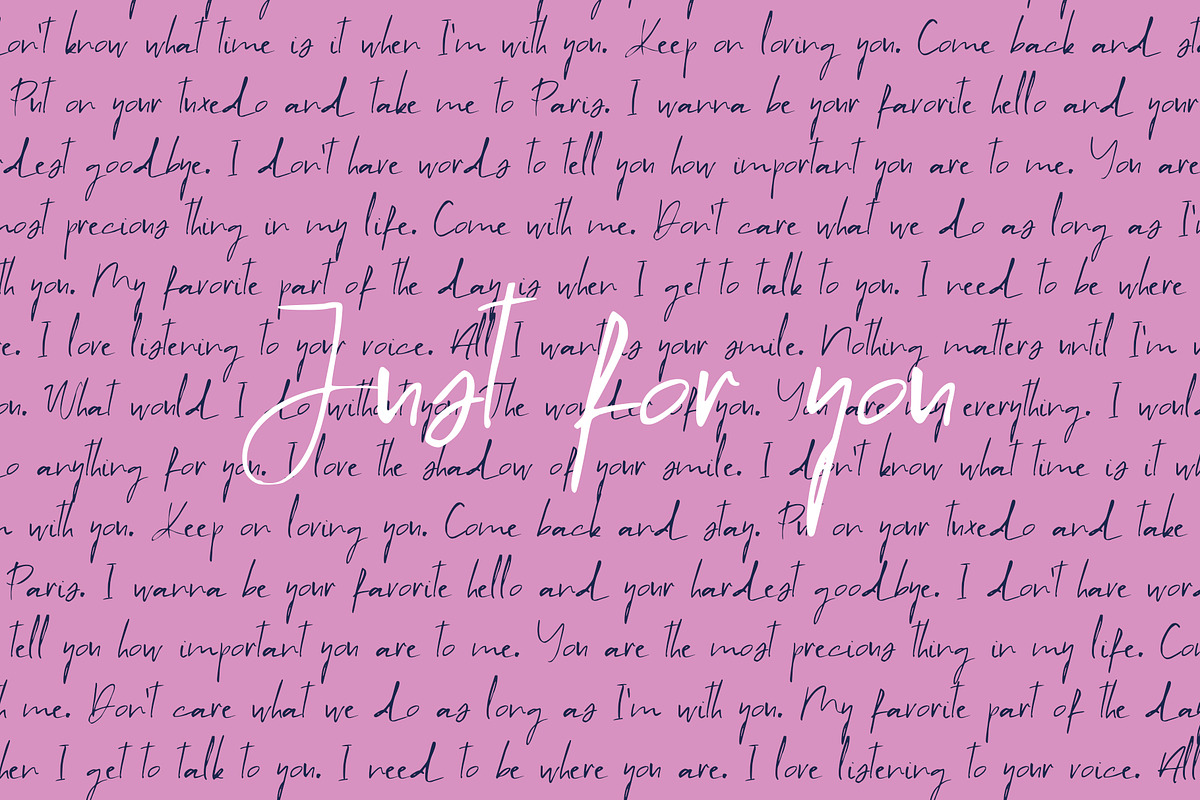 don't know what time is it when I'm with you. Keep on loving you. Come back and st
Put on your tuxedo and take me to Paris. I wanna be your favorite hello and your
rdest goodbye. I don't have words to tell you how important you are to me. You are
most precious thing in my life. Come with me. Don't care what we do as long as I'm
th you. My favorite part of the day is when I get to talk to you. I need to be where
re. I love listening to your voice. All I want is your smile. Nothing matters until I'm w
Just for you
ou. What would I do without you. The wonder of you. You are my everything. I would
do anything for you. I love the shadow of your smile. I don't know what time is it wh
m with you. Keep on loving you. Come back and stay. Put on your tuxedo and take
Paris. I wanna be your favorite hello and your hardest goodbye. I don't have word
tell you how important you are to me. You are the most precious thing in my life. Com
h me. Don't care what we do as long as I'm with you. My favorite part of the day
hen I get to talk to you. I need to be where you are. I love listening to your voice. All